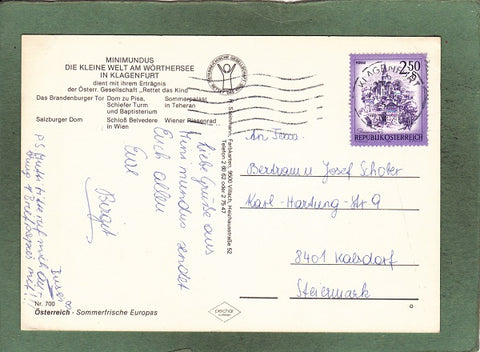 MINIMUNDUS
DIE KLEINE WELT AM WÖRTHERSEE
IN KLAGENFURT
dient mit ihrem Erträgnis
der Österr. Gesellschaft „Rettet das Kind"
Das Brandenburger Tor Dom zu Pisa, Sommerpalast
Schiefer Turm in Teheran
und Baptisterium
Salzburger Dom Schloß Belvedere Wiener Riesenrad
in Wien
Liebe Grüße aus
Minimundus sendet
Euch allen
Eure
Birgit
PS
Nr. 700
Österreich - Sommerfrische Europas
Farbkarten, 9500 Villach, 52
Telefon
pechar
KLAGENFURT
2.50
REPUBLIK ÖSTERREICH
An Fam.
Bertram u Josef Schober
Karl-Hartung-Str 9
8401 Kalsdorf
Steiermark